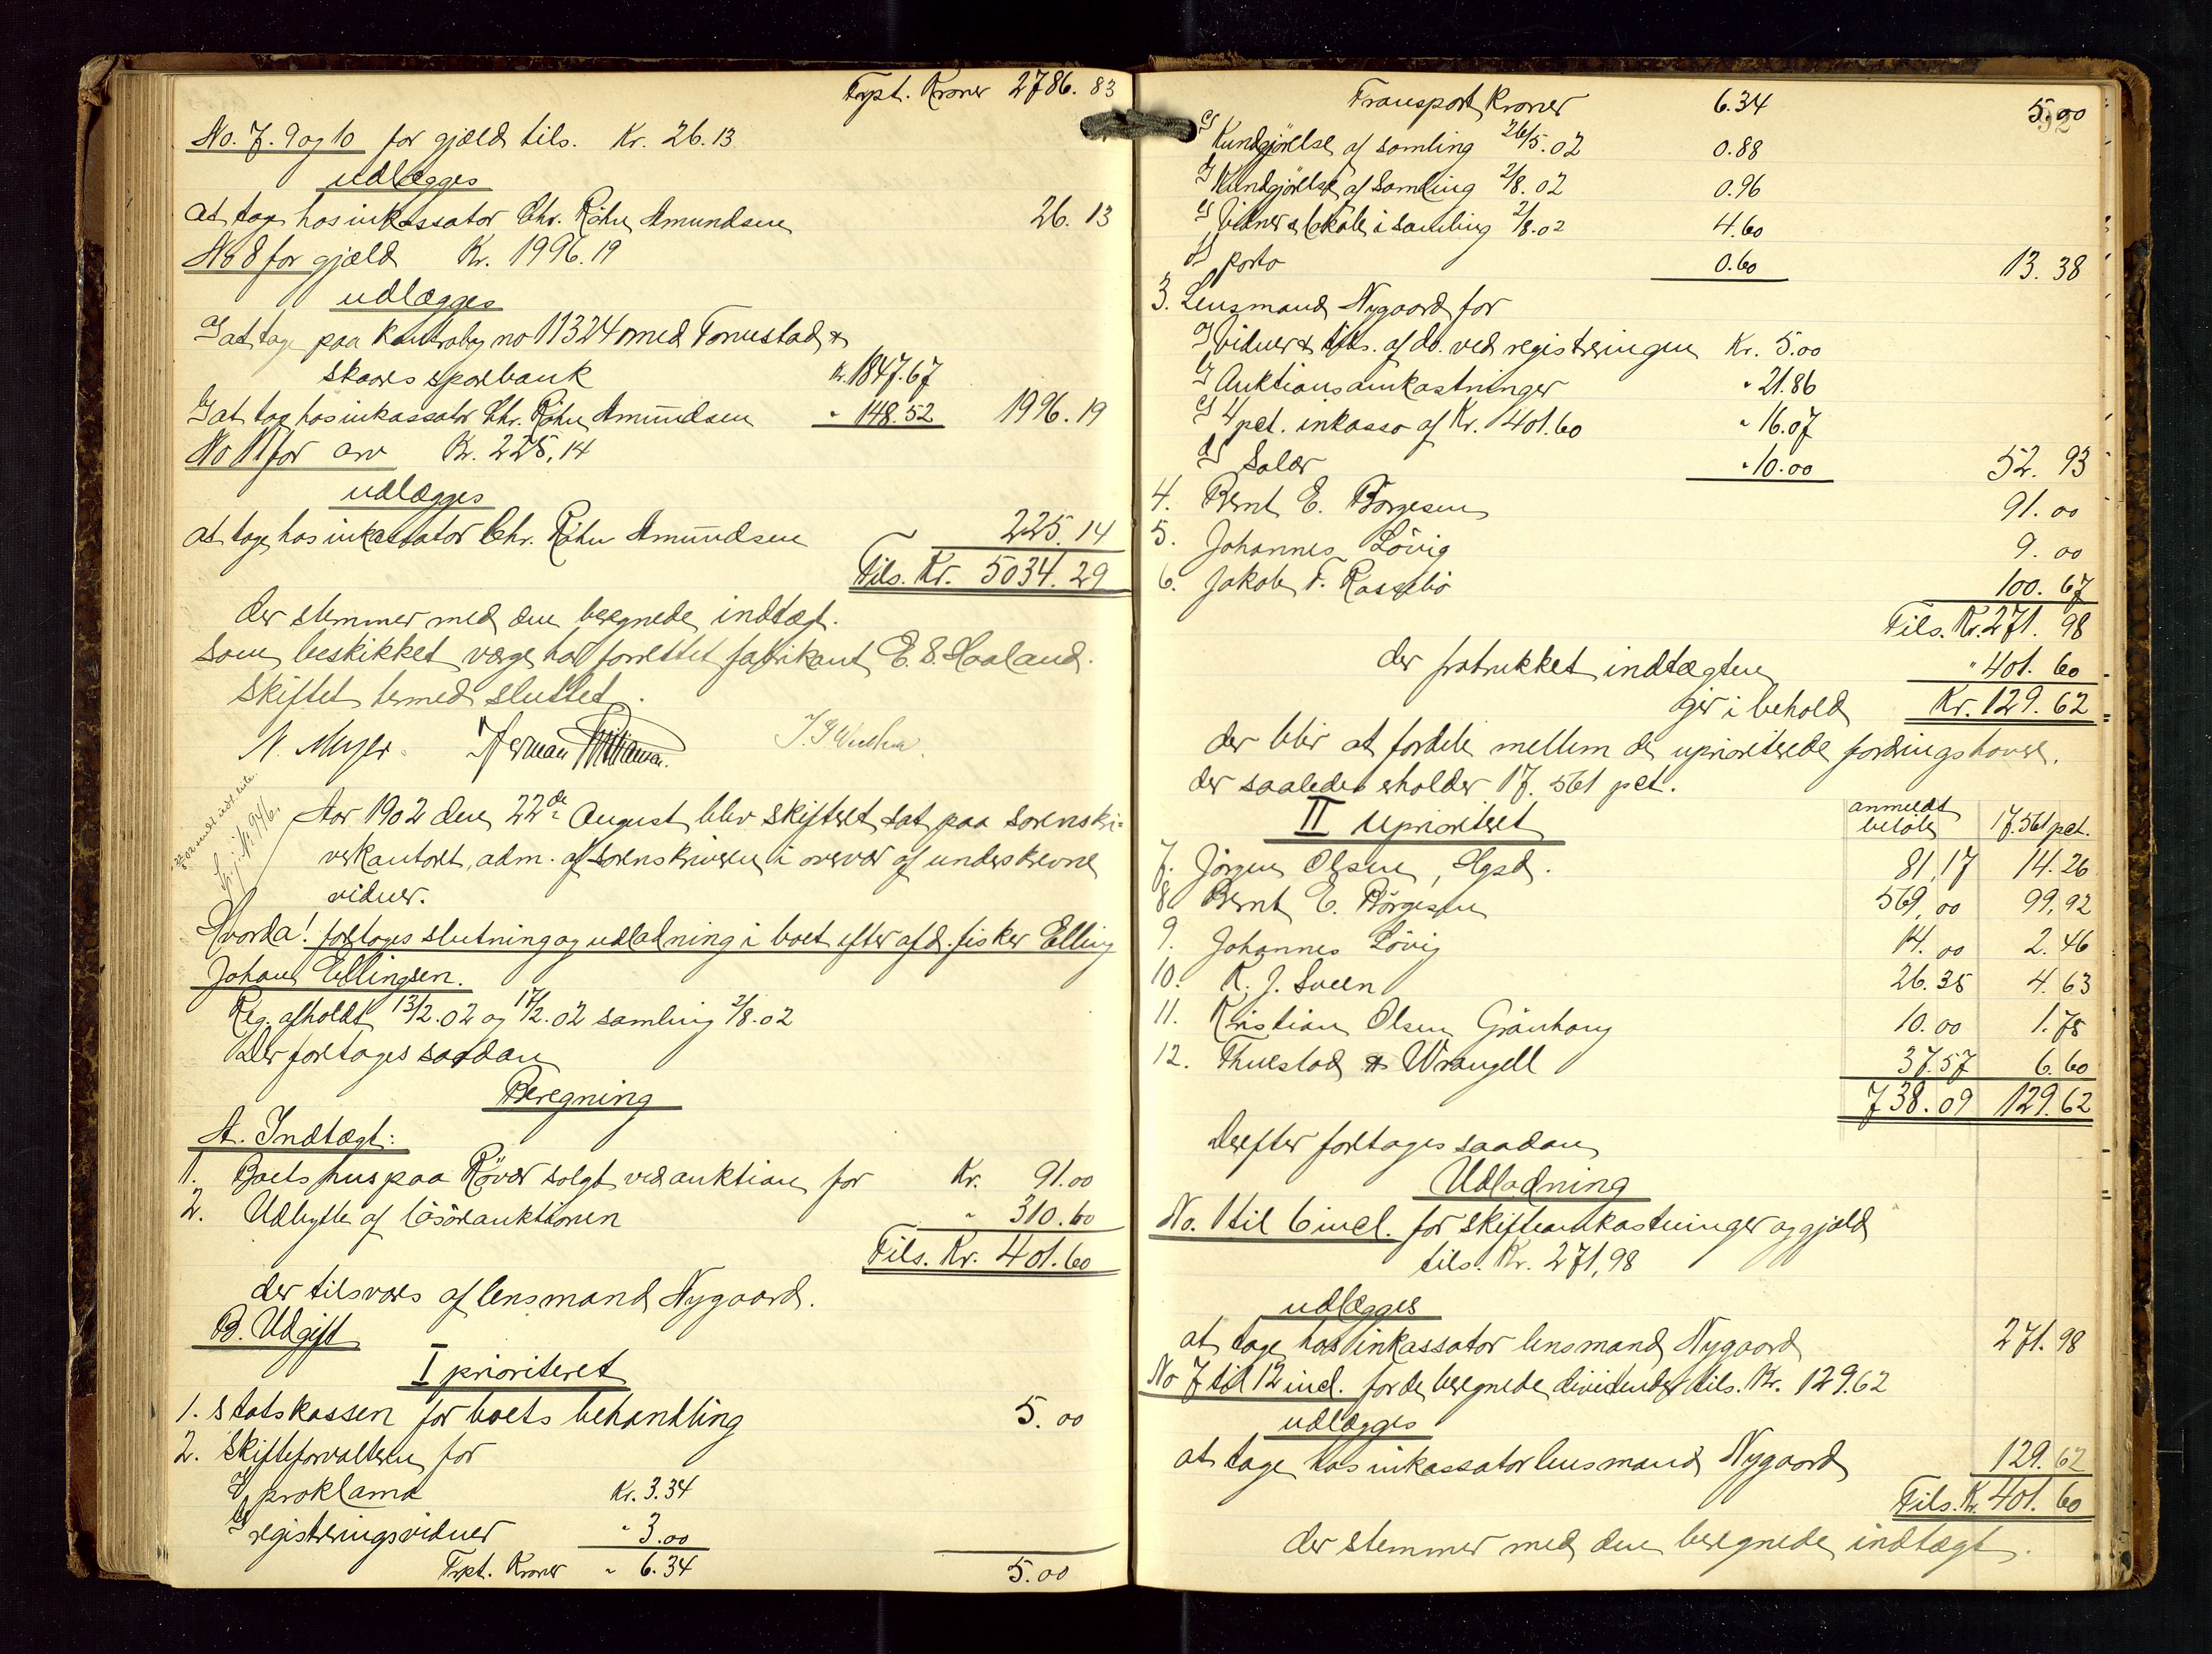 Trpt. Kroner 2786. 83
No. 7. 9 og 10 for gjæld tils. Kr. 26.13
udlægges
at tage hos inkassator Chr. Røhn Amundsen 26. 13
No 8 for gjæld Kr. 1996.19
udlægges
a) at tage paa kontrabog no 11324 med Torvestad &
Skaares sparebank Kr. 1847.67
b) at tage hos inkassator Chr. Røhn Amundsen " 148.52 1996. 19
No 11 for arv Kr. 225,14
udlægges
at tage hos inkassator Chr. Røhn Amundsen 225. 14
Tils. Kr. 5034. 29
der stemmer med den beregnede indtægt.
Som beskikket værge har forrettet fabrikant E. S. Haaland.
Skiftet hermed sluttet.
N. Meyer. Herman
Aar 1902 den 22de August blev skifteret sat paa sorenskri-
verkontoret, adm. af sorenskriveren i overvær af underskrevne
vidner.
Hvorda! foretoges slutning og udlodning i boet efter afd. fisker Elling
Johan Ellingsen.
Reg. afholdt 13/2.02 og 17/2.02 samling 2/8.02
Der foretoges saadan
Beregning
A. Indtægt:
1. Boets hus paa Røvær solgt ved auktion for Kr. 91.00
2. Udbytte af løsøreauktionen " 310.60
Tils. Kr. 401.60
der tilsvares af lensmand Nygaard.
B. Udgift
I prioriteret
1. Statskassen for boets behandling 5. 00
2. Skifteforvalteren for
a) proklama Kr. 3.34
b) registreringsvidner " 3.00
Trpt. Kroner " 6.34 5.00
Transport Kroner 6.34 5.00
c) Kundgjørelse af samling 26/5.02 0.88
d) Kundgjørelse af samling 2/8.02 0.96
e) Vidner & lokale i samling 2/8.02 4.60
f) porto 0.60 13. 38
3. Lensmand Nygaard for
a) vidner & tils. af do. ved registreringen Kr. 5.00
b) Auktionsomkostninger " 21.86
c) 4 pct. inkasso af Kr. 401.60 " 16.07
d) Salær " 10.00 52. 93
4. Bernt E. Børgesen 91. 00
5. Johannes Løvig 9. 00
6. Jakob F. Rassebø 100. 67
Tils. Kr. 271. 98
der fratrukket indtægten " 401. 60
gjør i behold Kr. 129. 62
der blir at fordele mellem de uprioriterede fordringshavere,
der saaledes erholder 17. 561 pct.
II Uprioriteret anmeldt beløb 17.561 pct.
7. Jørgen Olsen, Hgsd. 81,17 14.26
8 Bernt E. Børgesen 569,00 99,92
9. Johannes Løvig 14.00 2.46
10. K. J. Sveen 26.35 4.63
11. Kristian Olsen Grønhaug 10.00 1.75
12. Thuestad & Wrangell 37.57 6.60
738.09 129.62
Derefter foretoges saadan
Udlodning
No. 1 til 6 incl. for skifteomkostninger og gjæld
tils. Kr. 271,98
udlægges
at tage hos inkassator lensmand Nygaard 271.98
No 7 til 12 incl. for de beregnede dividender tils. Kr. 129.62
udlægges
at tage hos inkassator lensmand Nygaard 129.62
Tils. Kr. 401. 60
der stemmer med den beregnede indtægt.